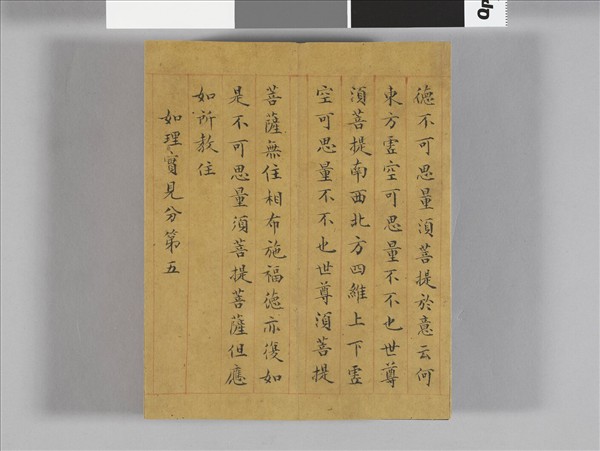 德不可思量須菩提於意云何
東方虛空可思量不不也世尊
須菩提南西北方四維上下虛
空可思量不不也世尊須菩提
菩薩無住相布施福德亦復如
是不可思量須菩提菩薩但應
如所教住
如理實見分第五